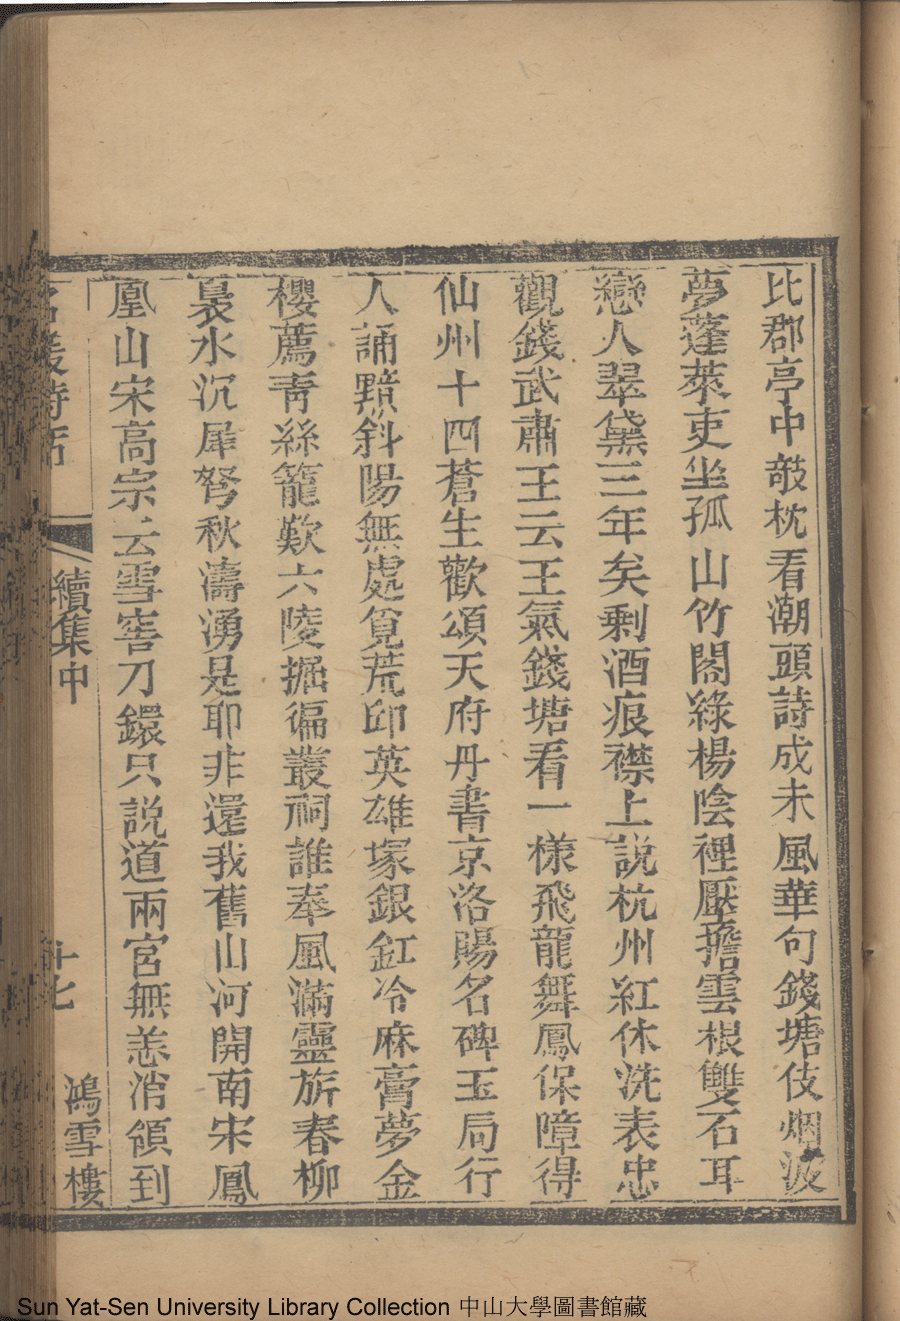 比郡亭中敧枕看潮頭詩成未風華句錢塘伎烟波
夢蓬萊吏坐孤山竹閣綠楊陰裡壓擔雲根雙石耳
戀人翠黛三年矣剩酒痕襟上說杭州紅休洗表忠
觀錢武肅王云王氣錢塘看一樣飛龍舞鳳保障得
仙州十四蒼生歡頌天府丹書京洛賜名碑玉局行
人誦黯斜陽無處覓荒邱英雄塚銀釭冷麻膏夢金
櫻薦靑絲籠歎六陵掘徧叢祠誰奉風滿靈旂春柳
裊水沉犀弩秋濤湧是耶非還我舊山河開南宋鳳
凰山宋高宗云雪窖刀鐶只說道兩宮無恙消領到
名媛詩話
續集中
十七
鴻雪樓
Sun Yat-Sen University Library Collection 中山大學圖書館藏